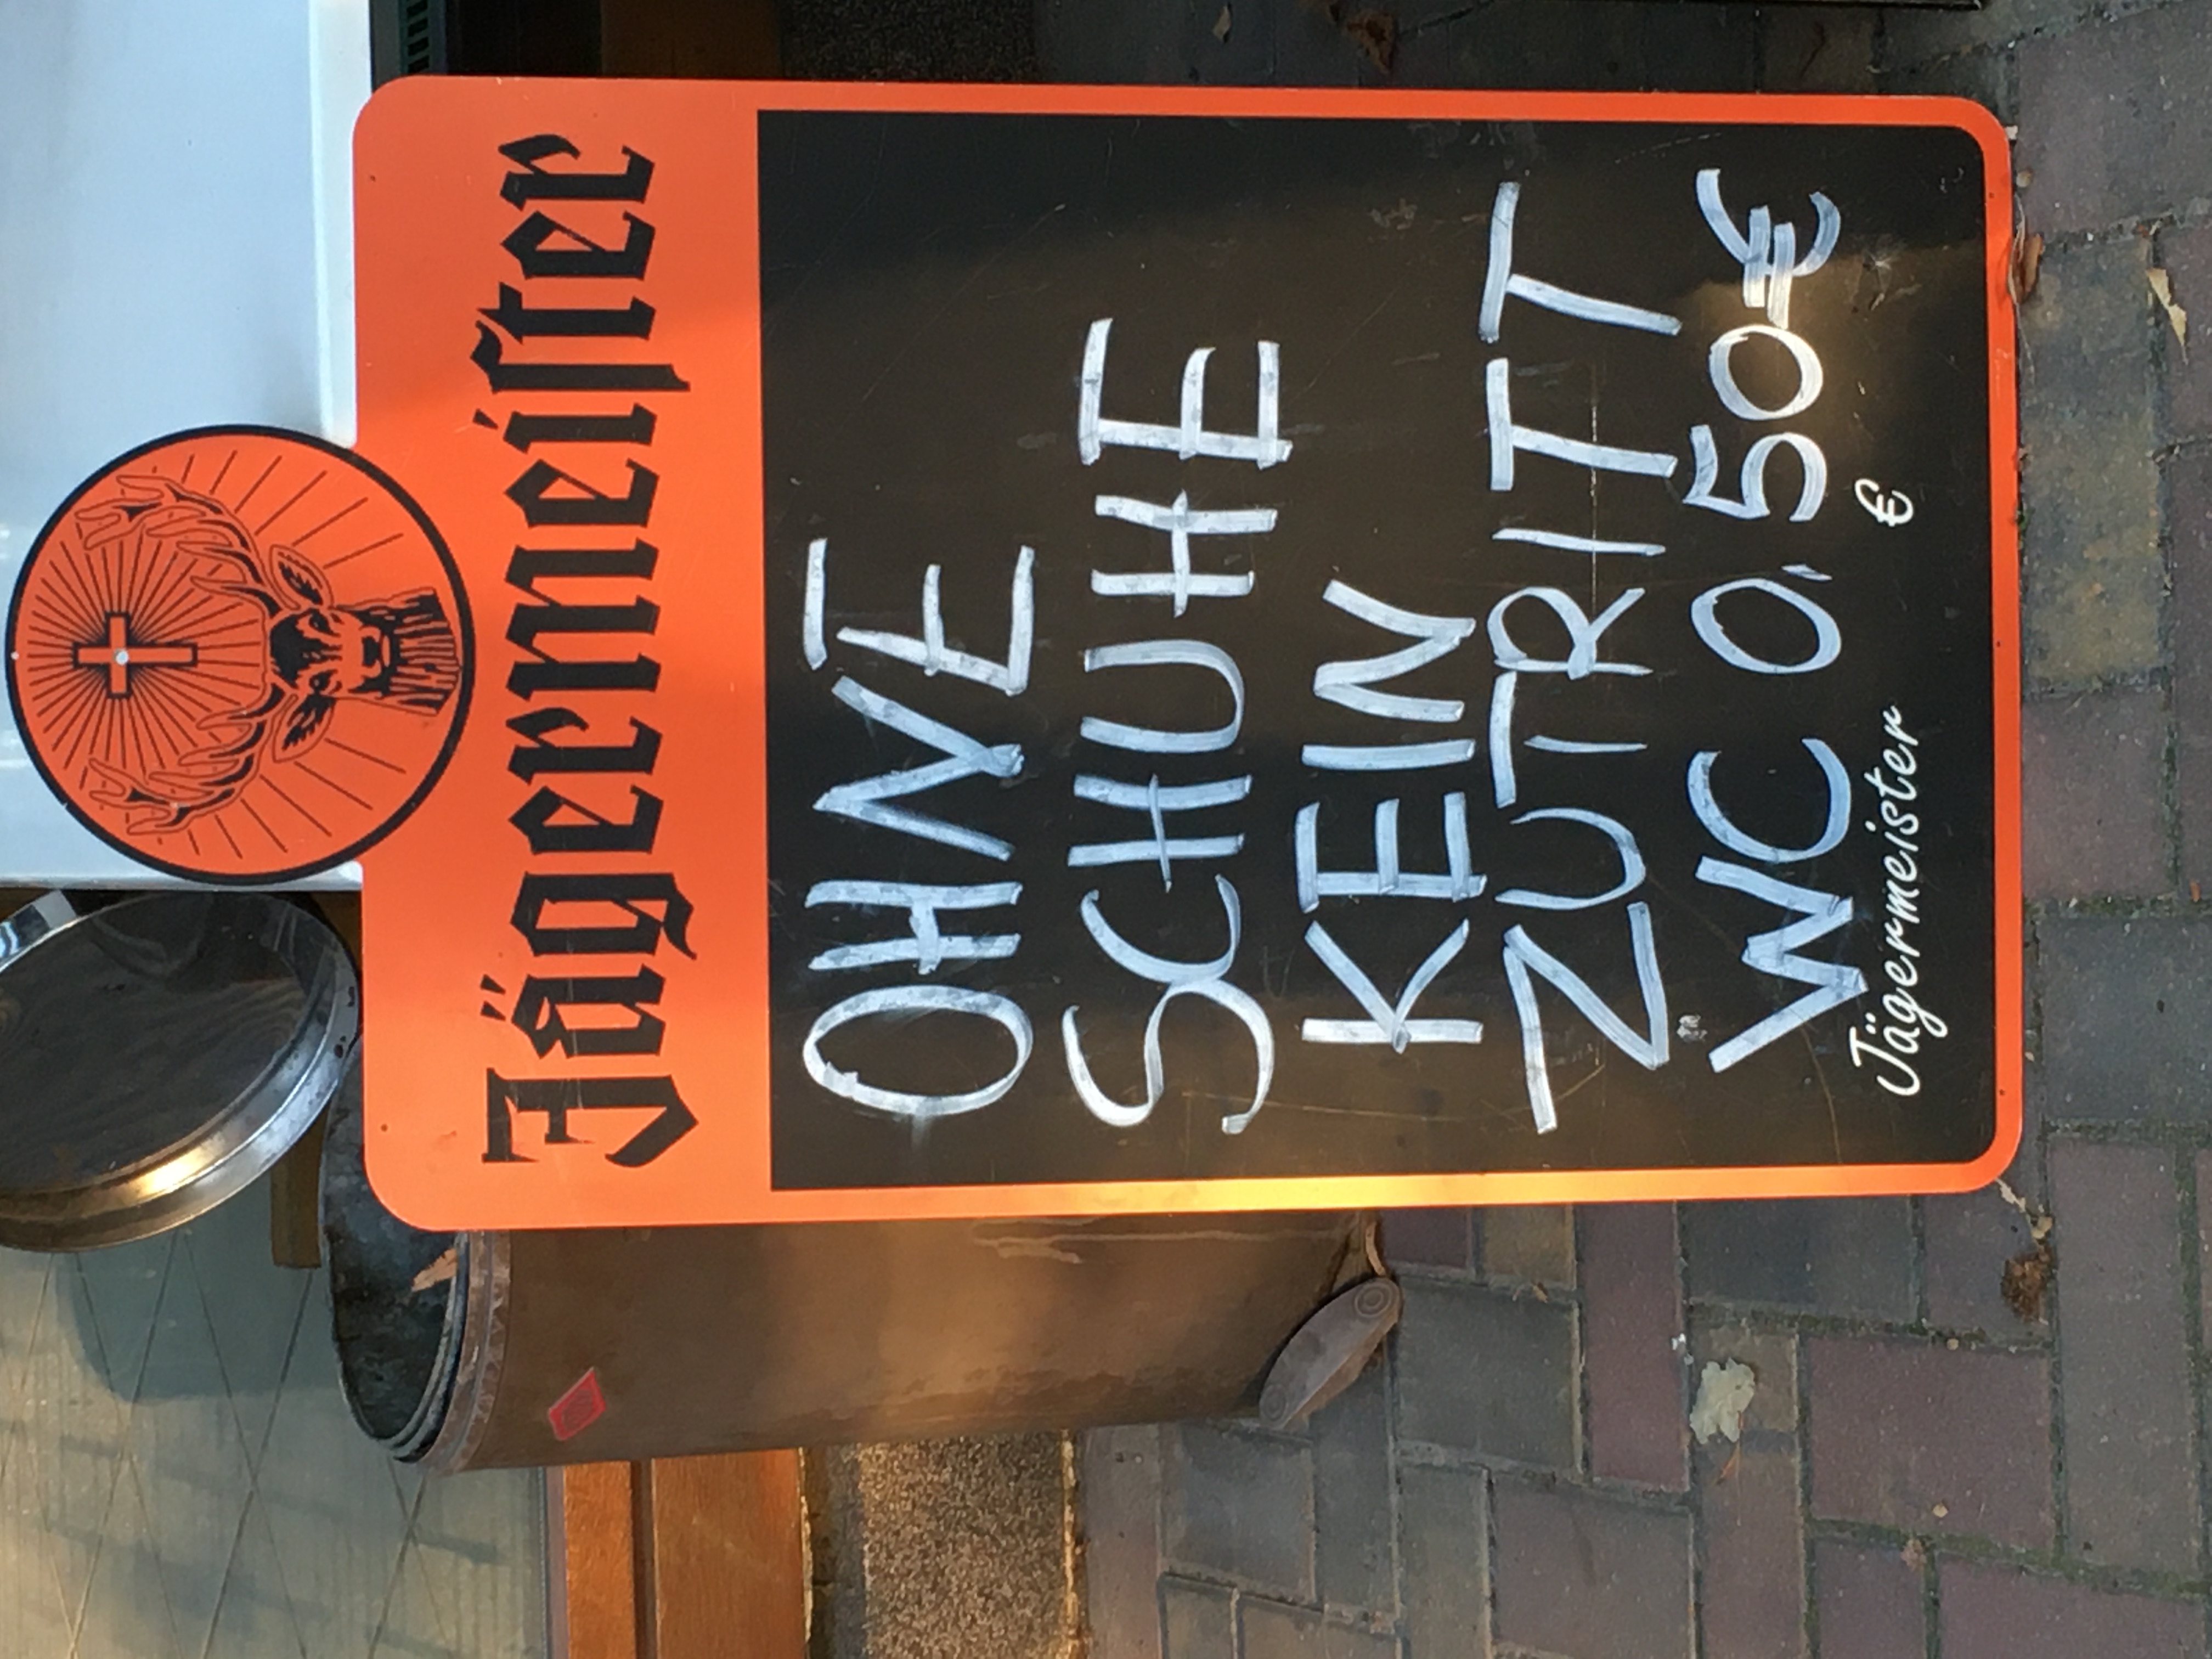 Jägermeister
OHNE
SCHUHE
KEIN
ZUTRITT
WC 0,50€
Jägermeister €